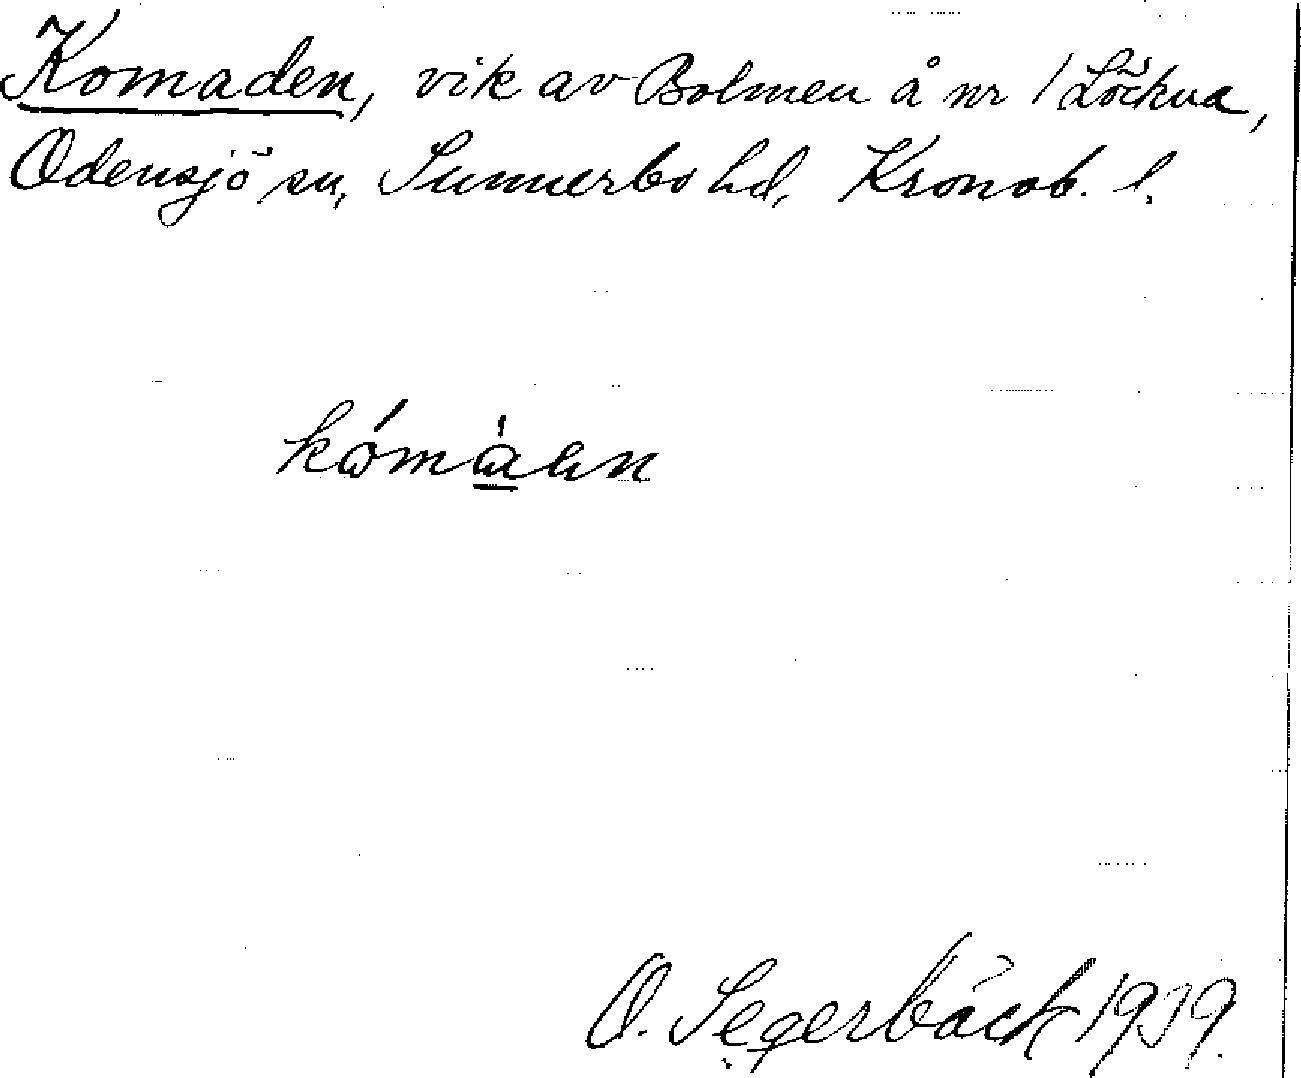 Komaden, vik av Bolmen å nr 1 Löckna,
Odensjö sn, Sunnerbo hd, Kronob. l.
kómàen
O. Segerbäck 1939.